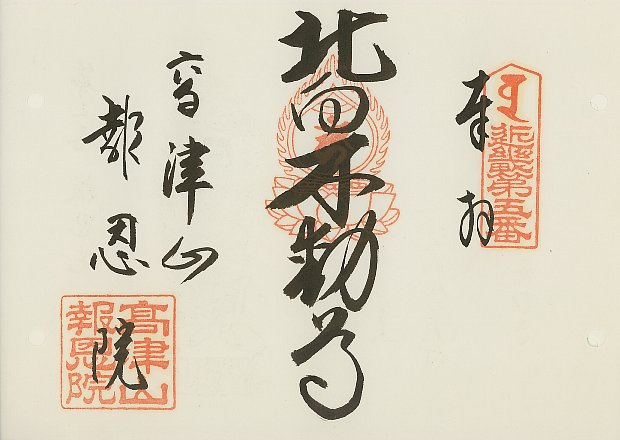 奉拝
近畿第五番
北向不動尊
高津山
報恩院
高津山
報恩院